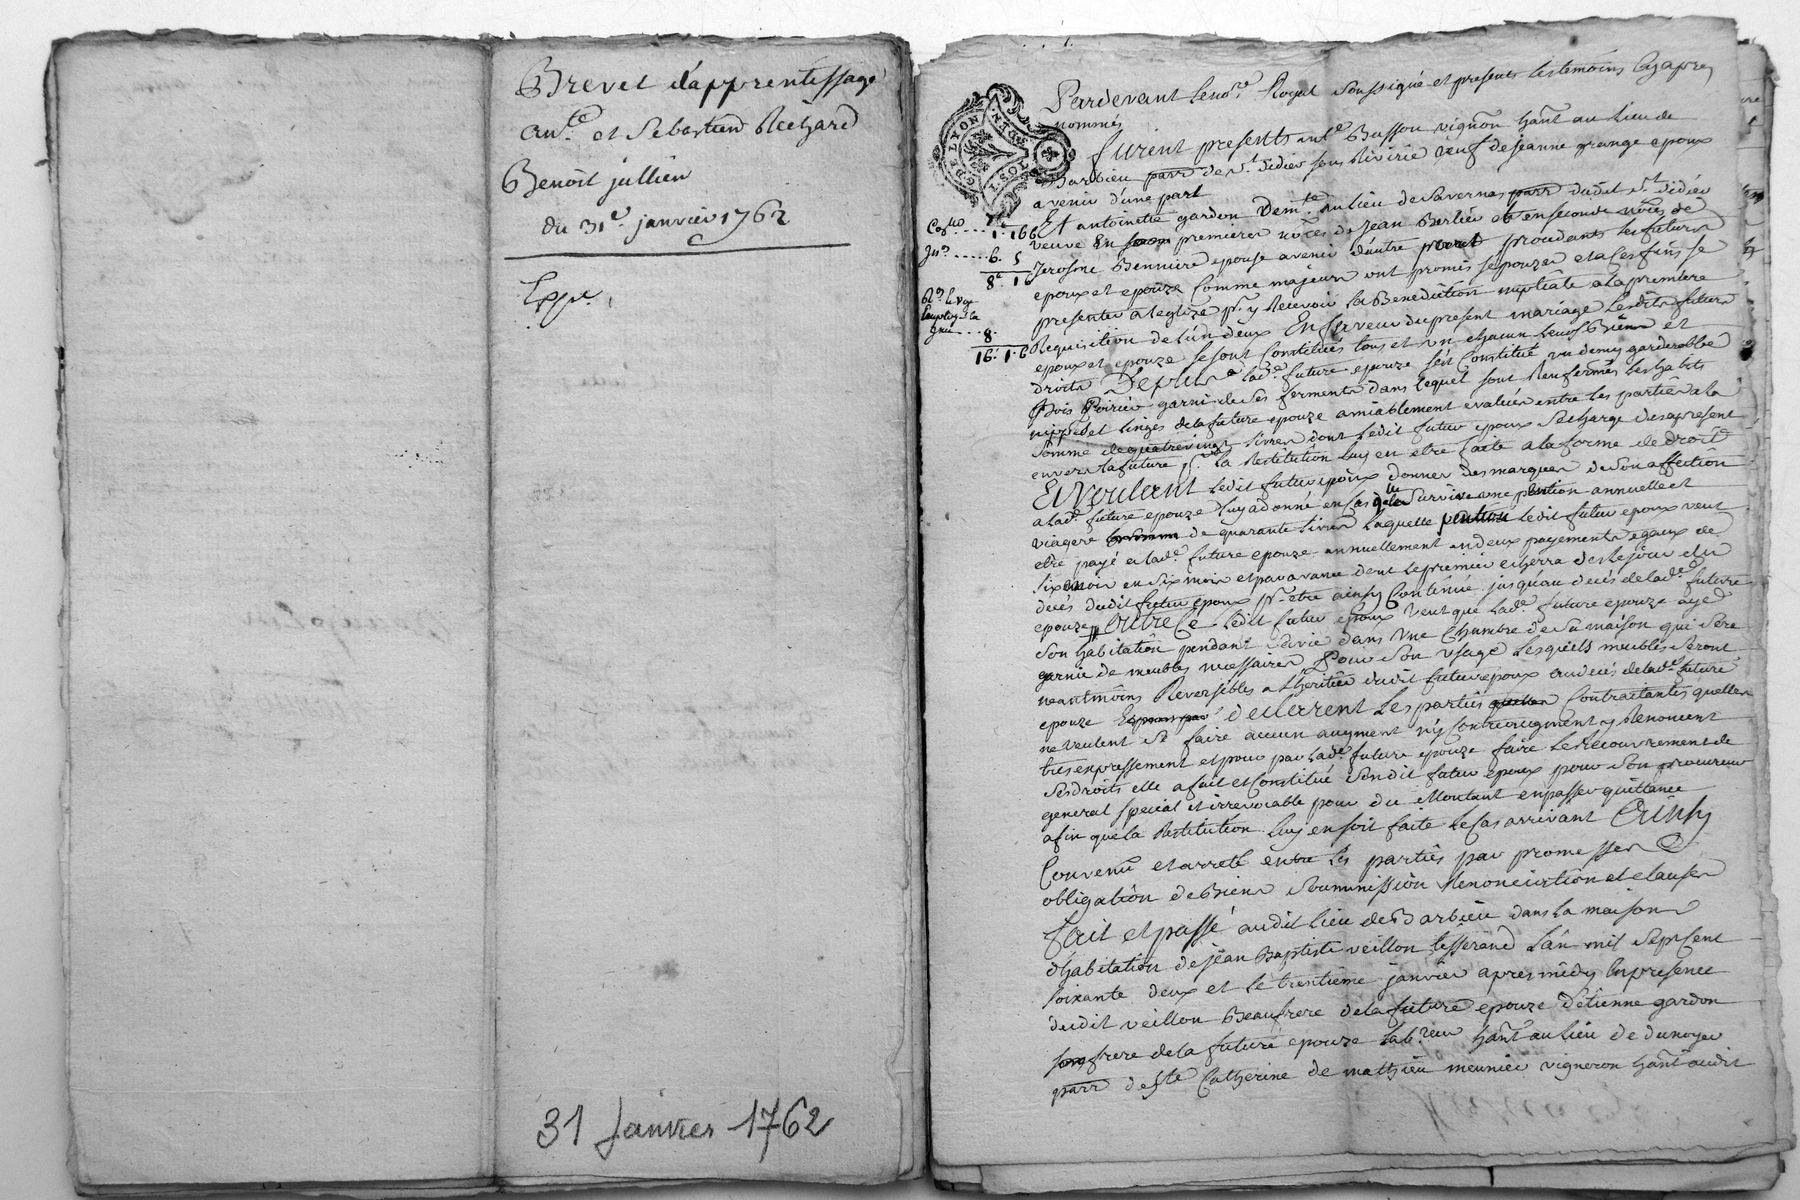 Brevet d'apprentissage
ant.e et Sebastien Richard
Benoit jullien
du 31e. janvier 1762
Expe.
31 Janvier 1762
G. DE LYON
Pardevant le no.re Royal soussigné et presents les temoins cy apres
nommés
furent presents ant.e Busson vigñon hãnt au lieu de
Barbieu parr de s.t didier sous Rivirie veuf de jeanne grange epoux
avenir d'une part
Et antoinette gardon Dem.te au lieu de Savernas parr dudit s.t didier
veuve en premieres noces de jean Berlieu et en seconde noces de
jerosme Bennière epouse avenir d'autre part procedants les futurs
epoux et epouze comme majeurs ont promis s'epouzer et a ces fins se
presenter a leglize p.r y Recevoir la Benediction nuptiale a la premiere
Requisition de l'un deux En faveur du present mariage lesdits futurs
epoux et epouze se sont Constitués tous et un chacun leurs Biens et
droits De plus lad.e future epouze s'est Constitué un demy garderobbe
Bois Poirier garni de ses ferments dans lequel sont Renfermés les habits
nippes et linges de la future epouze amiablement evalués entre les parties a la
somme de quatrevingt livres dont ledit futur epoux se charge des apresent
envers la future p.r la Restitution luy en etre faite a la forme de droit
Et Voulant ledit futur epoux donner des marques de son affection
a lad.e future epouze luy a donné en cas de survie une pention annuelle et
viagere de quarante livres laquelle pention ledit futur epoux veut
etre payé a lad.e future epouze annuellement en deux payements egaux de
six mois en six mois et par avance dont le premier echerra des le jour du
decés dudit futur epoux p.r etre ainsy Continué jusqu'au decés de lad.e future
epouze, Outre Ce ledit futur epoux veut que lad.e future epouze aye
son habitation pendant sa vie dans une Chambre de sa maison qui sera
garnie de meubles necessaires Pour son usage lesquels meubles seront
neantmoins Reversibles a l'heritier dudit futur epoux au decés de lad.e future
epouze declarrent les parties Contractantes quelles
ne veulent se faire aucun augment ny Contreaugment y Renoncent
tres expressement et pour par lad.e future epouze faire le Recouvrement de
ses droits elle a fait et Constitué sondit futur epoux pour son procureur
general special et irrevocable pour du Montant en passer quittance
afin que la Restitution luy en soit faite le Cas arrivant Ainsy
Convenu et arreté entre les parties par promesses
obligation de Biens soummission Renonciation et clauses
Fait et passé audit lieu de Barbieu dans la maison
d'habitation de jean Baptiste veillon tisserand L'an mil sept Cent
soixante deux et le trentieme janvier apres midy En presence
dudit veillon Beaufrere de la future epouze d'etienne gardon
frere de la future epouze lab.reur hãnt au lieu de dunoyer
parr de s.te Catherine de mathieu meunier vigneron hãnt audit
1. 16 6
6. 5
8. 1 6
8.
16. 1. 6